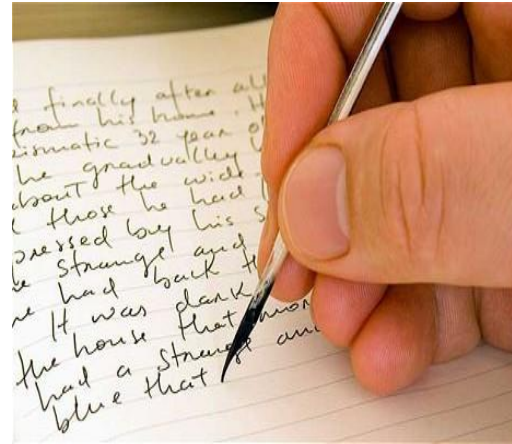 finally after all
from his home. H
ismatic 32 year o
he gradualley
about the wide
those he had
pressed boy his s
strange and
had back t
It was dark
the house that mor
had a strange an
blue that